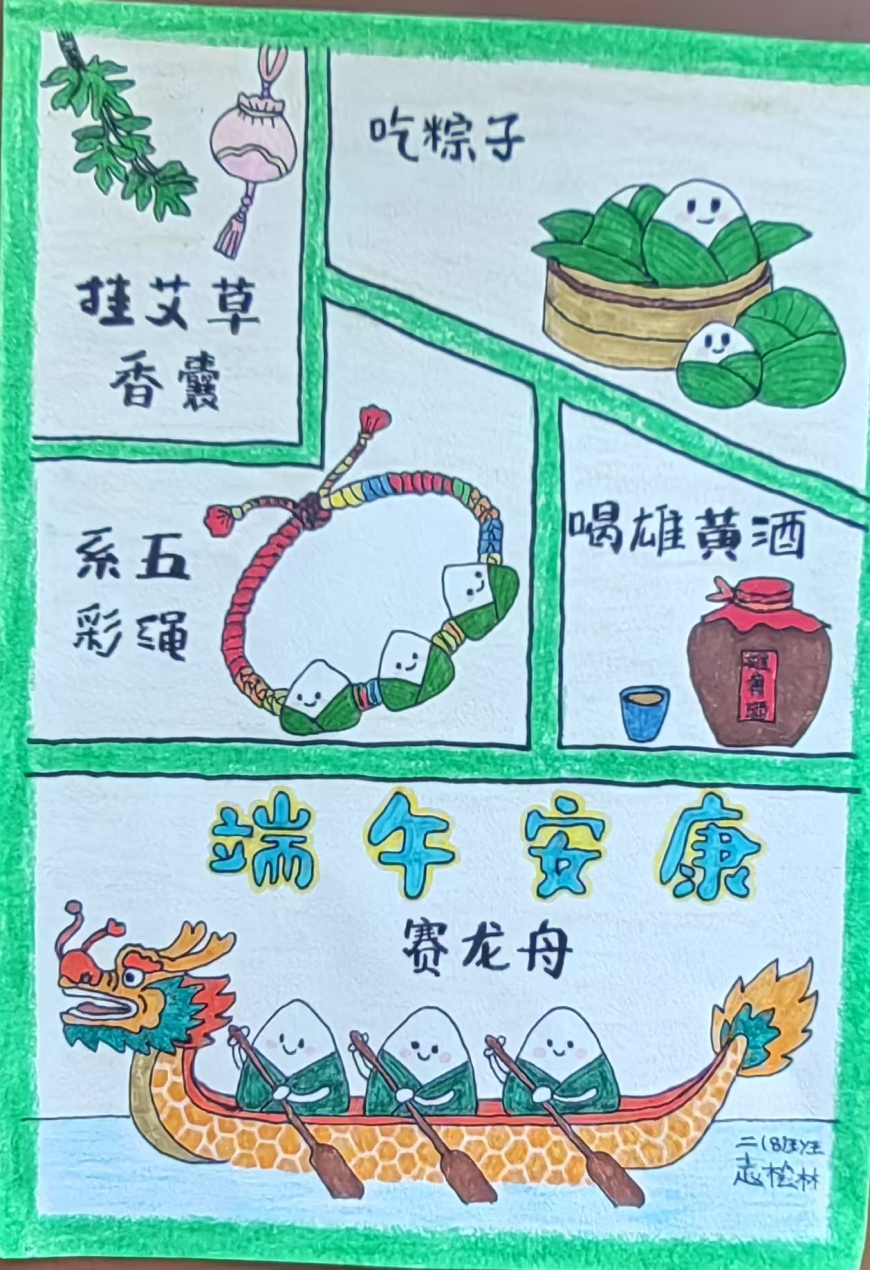 吃粽子
挂艾草
香囊
系五
彩绳
喝雄黄酒
雄黄酒
端午安康
赛龙舟
二(8)班
志桧林